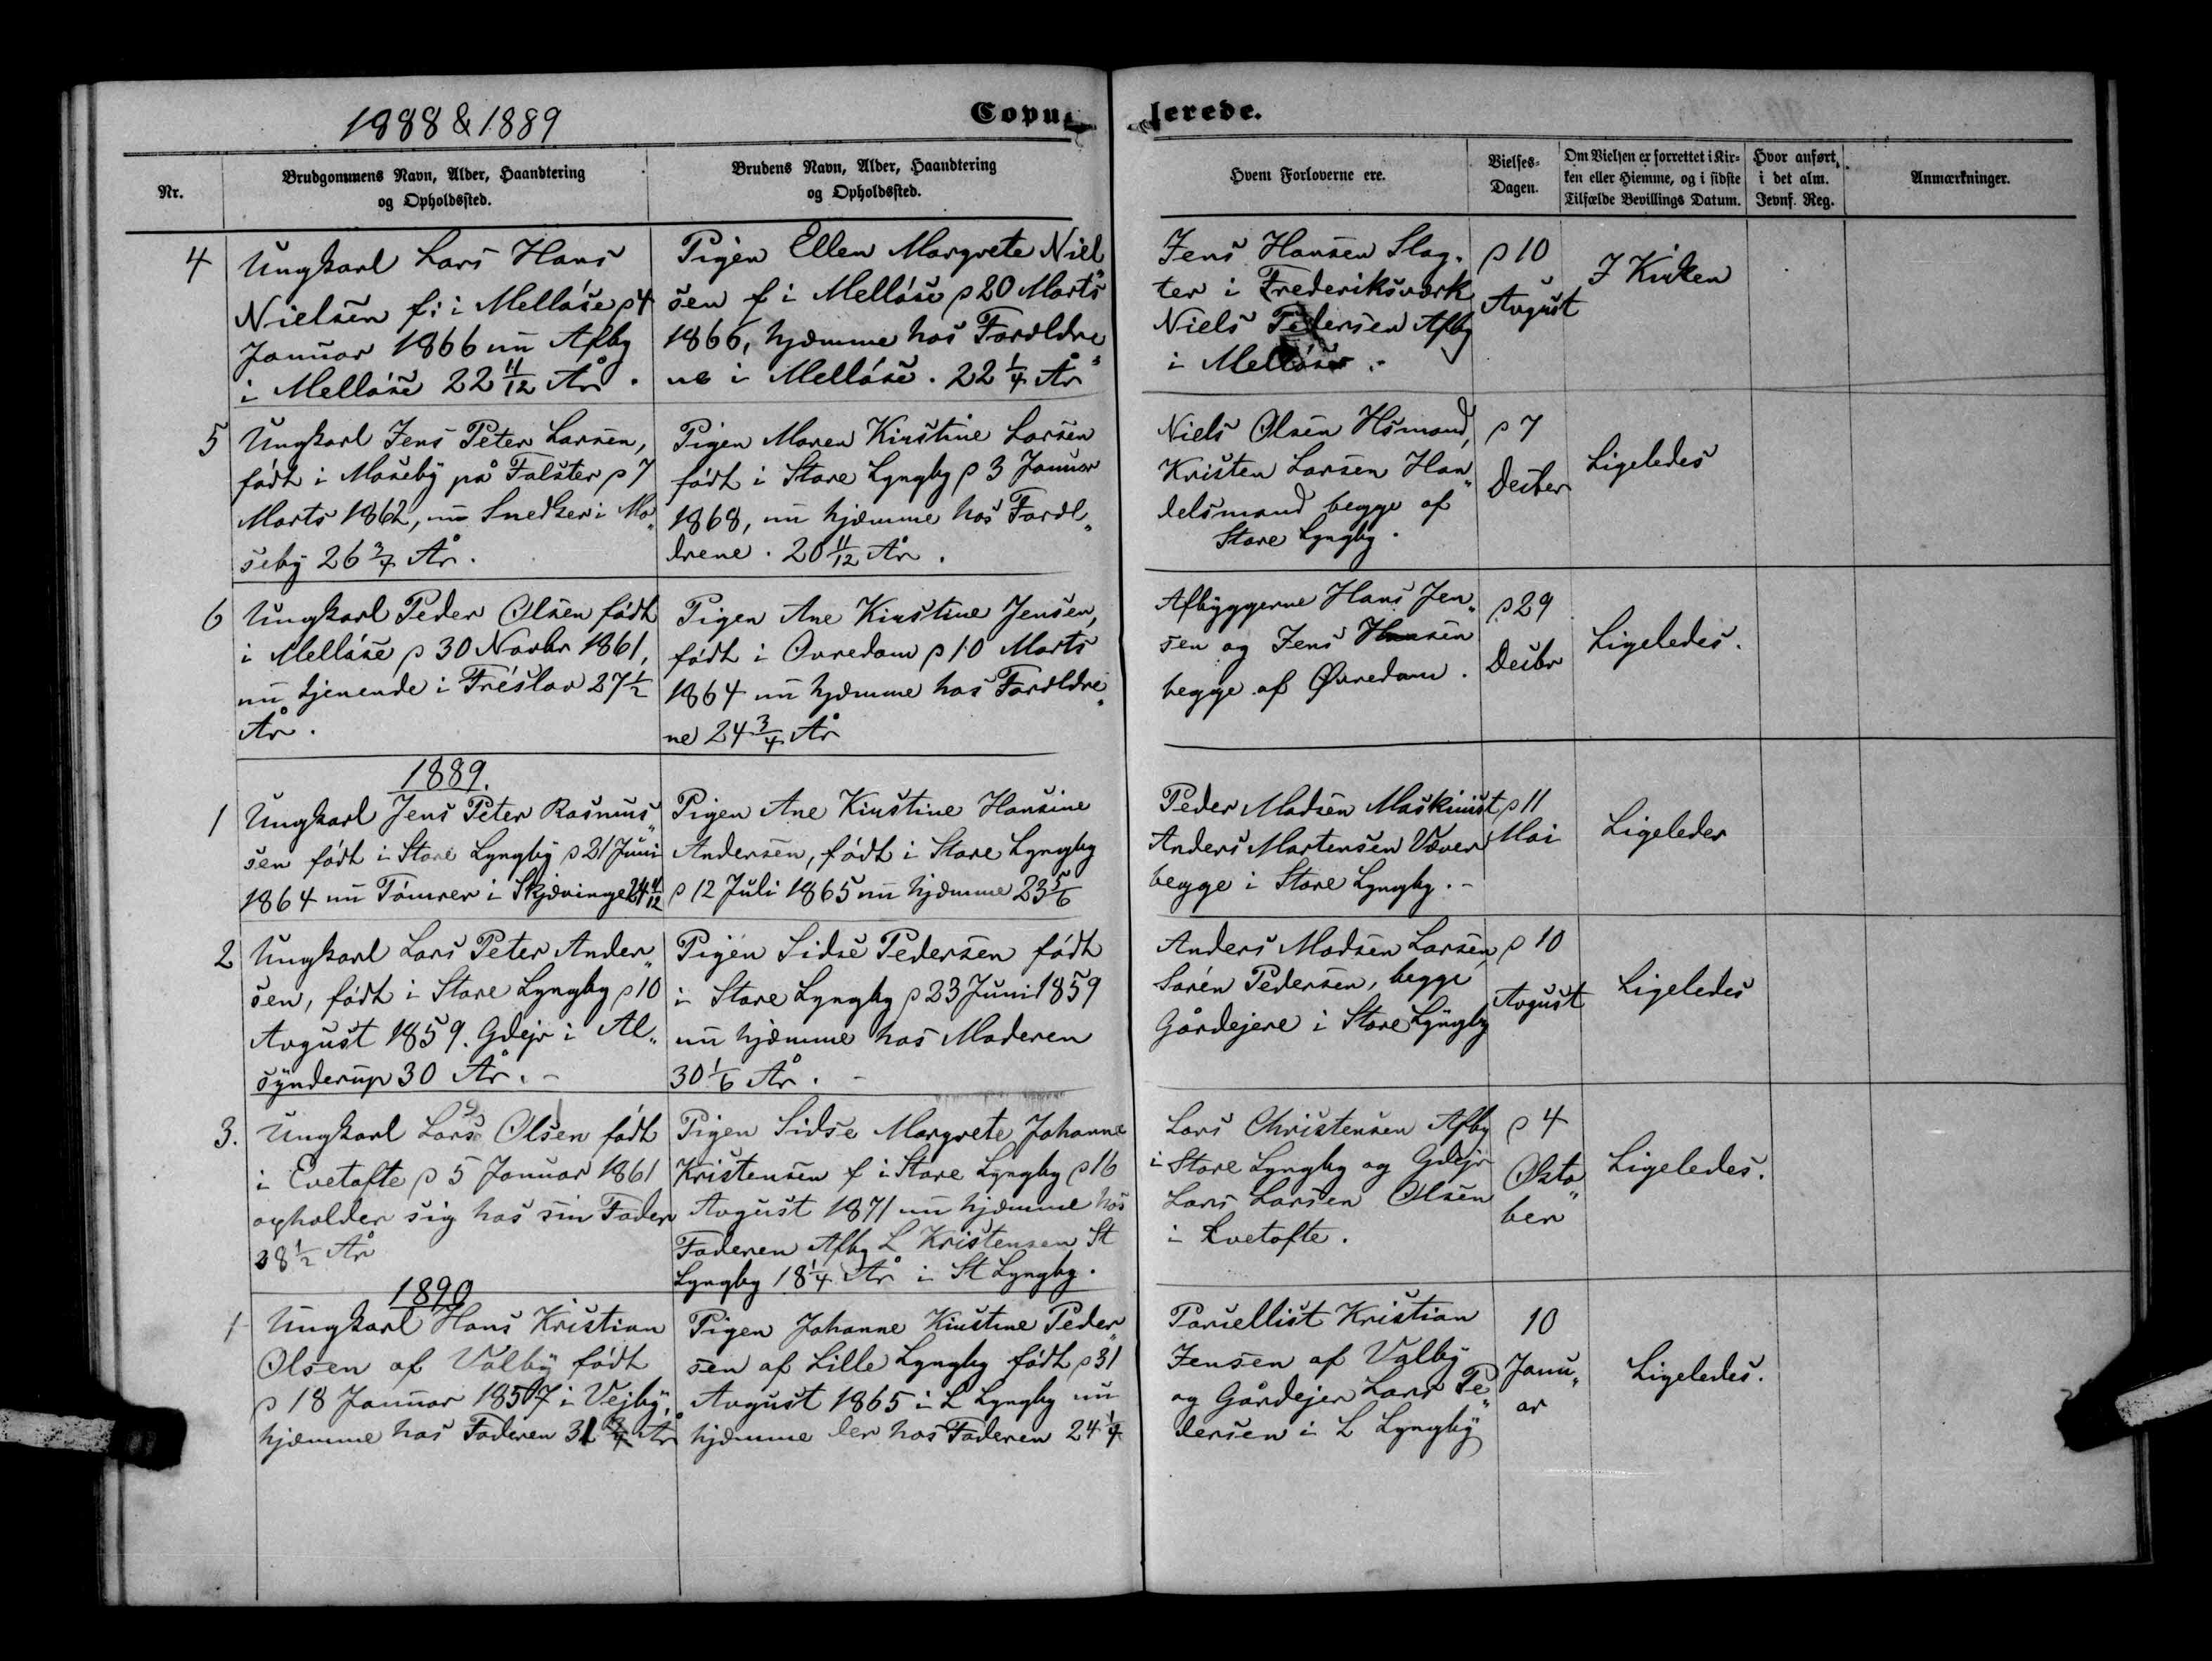 1888 & 1889
Copulerede.
Nr.
Brudgommens Navn, Alder, Haandtering
og Opholdssted.
Brudens Navn, Alder, Haandtering
og Opholdssted.
Hvem Forloverne ere.
Vielses-
Dagen.
Om Vielsen er forrettet i Kir-
ken eller Hiemme, og i sidste
Tilfælde Bevillings Datum.
Hvor anført
i det alm.
Jevnf. Reg.
Anmærkninger.
4
Ungkarl Lars Hans
Nielsen f: i Melløse p 4
Januar 1866 nu Afby
i Melløse 22 11/12 År.
Pigen Ellen Margrete Niel„
sen f i Melløse p 20 Marts
1866, hjemme hos Forældre„
ne i Melløse. 22 1/4 År
Jens Hansen Slag-
ter i Frederiksværk
Niels Pedersen Afby
i Melløse.
p 10
Avgust
I Kirken
5
Ungkarl Jens Peter Larsen,
født i Moseby på Falster p 7
Marts 1862, nu Snedker i Mo„
seby 26 3/4 År.
Pigen Maren Kirstine Larsen
født i Store Lyngby p 3 Januar
1868, nu hjemme hos Foræl„
drene. 20 11/12 År.
Niels Olsen Hsmand,
Kristen Larsen Han„
delsmand begge af
Store Lyngby.
p 7
Decber
Ligeledes
6
Ungkarl Peder Olsen født
i Melløse p 30 Novbr 1861,
nu tjenende i Freslov 27 1/2
År.
Pigen Ane Kirstine Jensen,
født i Ovredam p 10 Marts
1864 nu hjemme hos Forældre„
ne 24 3/4 År
Afbyggerne Hans Jen„
sen og Jens Hansen
begge af Øvredam.
p 29
Decbr
Ligeledes.
1889.
1
Ungkarl Jens Peter Rasmus„
sen født i Store Lyngby p 21 Juni
1864 nu Tømrer i Skjævinge 24 11/12
Pigen Ane Kirstine Hansine
Andersen, født i Store Lyngby
p 12 Juli 1865 nu hjemme 23 5/6
Peder Madsen Maskinist
Anders Mortensen Væver
begge i Store Lyngby. -
p 11
Mai
Ligeledes
2
Ungkarl Lars Peter Ander„
sen, født i Store Lyngby p 10
Avgust 1859. Gdejr i Al„
synderup 30 År. -
Pigen Sidse Pedersen født
i Store Lyngby p 23 Juni 1859
nu hjemme hos Moderen
30 1/6 År. -
Anders Madsen Larsen
Søren Pedersen, begge
Gårdejere i Store Lyngby
p 10
Avgust
Ligeledes
3.
Ungkarl Lars Olsen født
i Evetofte p 5 Januar 1861
opholder sig hos sin Fader
28 1/2 År
Pigen Sidse Margrete Johanne
Kristensen f i Store Lyngby p 16
Avgust 1871 nu hjemme hos
Faderen Afby L Kristensen St
Lyngby 18 1/4 År i St Lyngby.
Lars Christensen Afby
i Store Lyngby og Gdejr
Lars Larsen Olsen
i Evetofte.
p 4
Okto„
ber
Ligeledes.
1890
1
Ungkarl Hans Kristian
Olsen af Valby født
p 18 Januar 1857 i Vejby,
hjemme hos Faderen År
Pigen Johanne Kirstine Peder„
sen af Lille Lyngby født p 31
Avgust 1865 i L Lyngby nu
hjemme der hos Faderen 24 1/4
Parcellist Kristian
Jensen af Valby
og Gårdejer Lars Pe„
dersen i L Lyngby
10
Janu„
ar
Ligeledes.